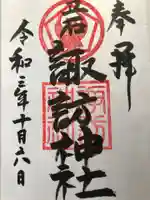 奉拝
諏訪神社
令和三年十月六日